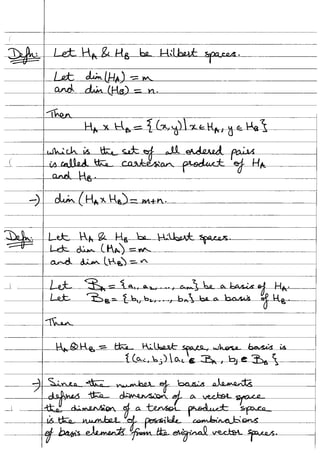 Defn: Let H_A & H_B be Hilbert spaces.
Let dim (H_A) = m
and dim (H_B) = n.
Then
H_A × H_B = {(x,y) | x ∈ H_A, y ∈ H_B}
which is the set of all ordered pairs
is called the cartesian product of H_A
and H_B.
→) dim (H_A × H_B) = m+n.
Defn: Let H_A & H_B be Hilbert spaces.
Let dim (H_A) = m
and dim (H_B) = n
Let B_A = {a_1, a_2, ...., a_m} be a basis of H_A.
Let B_B = {b_1, b_2, ...., b_n} be a basis of H_B.
Then
H_A ⊗ H_B = the Hilbert space, whose basis is
{(a_i, b_j) | a_i ∈ B_A, b_j ∈ B_B}
→) Since the number of basis elements
defines the dimension of a vector space
the dimension of a tensor product space
is the number of possible combinations
of basis elements from the original vector spaces.